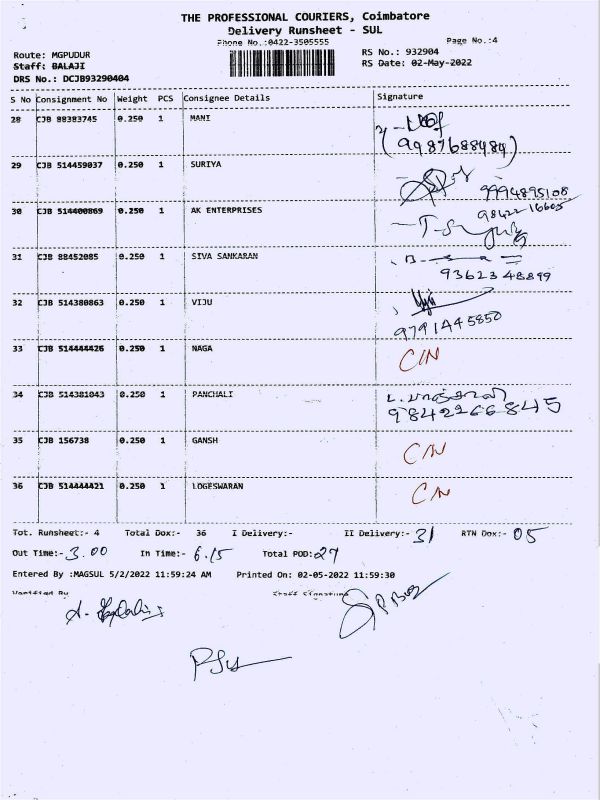 THE PROFESSIONAL COURIERS, Coimbatore
Delivery Runsheet - SUL
Phone No.:0422-3505555
Page No.:4
Route: MGPUDUR
RS No.: 932904
Staff: BALAJI
RS Date: 02-May-2022
DRS No.: DCJB93290404
S No Consignment No Weight PCS Consignee Details Signature
28 CJB 88383745 0.250 1 MANI
(9987688484)
29 CJB 514459037 0.250 1 SURIYA
9994895108
30 CJB 514400869 0.250 1 AK ENTERPRISES
98422 16605
31 CJB 88452085 0.250 1 SIVA SANKARAN
93623 48899
32 CJB 514380863 0.250 1 VIJU
9791445850
33 CJB 514444426 0.250 1 NAGA C/N
34 CJB 514381043 0.250 1 PANCHALI
9842266845
35 CJB 156738 0.250 1 GANSH C/N
36 CJB 514444421 0.250 1 LOGESWARAN C/N
Tot. Runsheet:- 4 Total Dox:- 36 I Delivery:- II Delivery:- 31 RTN Dox:- 05
Out Time:- 3.00 In Time:- 6.15 Total POD: 27
Entered By :MAGSUL 5/2/2022 11:59:24 AM Printed On: 02-05-2022 11:59:30
Verified By Staff Signature